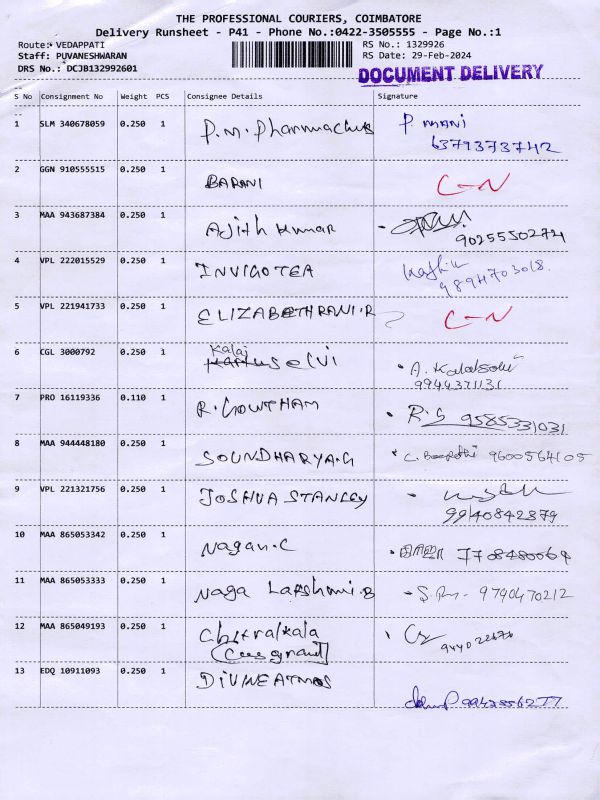 THE PROFESSIONAL COURIERS, COIMBATORE
Delivery Runsheet - P41 - Phone No.:0422-3505555 - Page No.:1
Route: VEDAPPATI
Staff: PUVANESHWARAN
DRS No.: DCJB132992601
RS No.: 1329926
RS Date: 29-Feb-2024
DOCUMENT DELIVERY
S No Consignment No Weight PCS Consignee Details Signature
1 SLM 340678059 0.250 1 P.M. P. MANI
6379373742
2 GGN 910555515 0.250 1 BARANI C-N
3 MAA 943687384 0.250 1 Ajith kumar
9025550274
4 VPL 222015529 0.250 1 INVIGOTEA
9894703018.
5 VPL 221941733 0.250 1 ELIZABETHRANI.R C-N
6 CGL 3000792 0.250 1 Kalai selvi A.
9944371131
7 PRO 16119336 0.110 1 R. GOWTHAM R.S 9585331031
8 MAA 944448180 0.250 1 SOUNDHARYA.G C. 9600564105
9 VPL 221321756 0.250 1 JOSHUA STANLEY
9940842879
10 MAA 865053342 0.250 1 Nagan.C
11 MAA 865053333 0.250 1 Naga Lakshmi.B 9790470212
12 MAA 865049193 0.250 1 Chitralkala
13 EDQ 10911093 0.250 1 DIVINE ATMOS